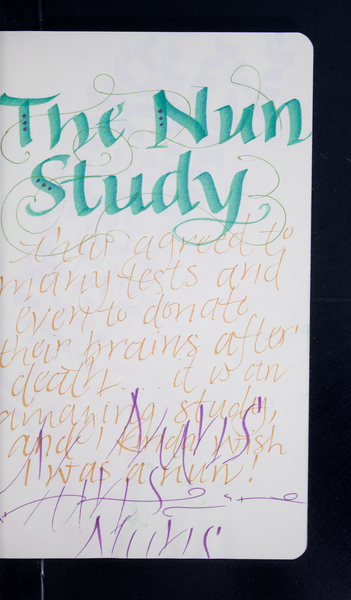 The Nun
Study
agreed to
many tests and
even to donate
their brains after
death... it is an
amazing study,
and I kinda wish
I was a nun!
Nuns
Nuns